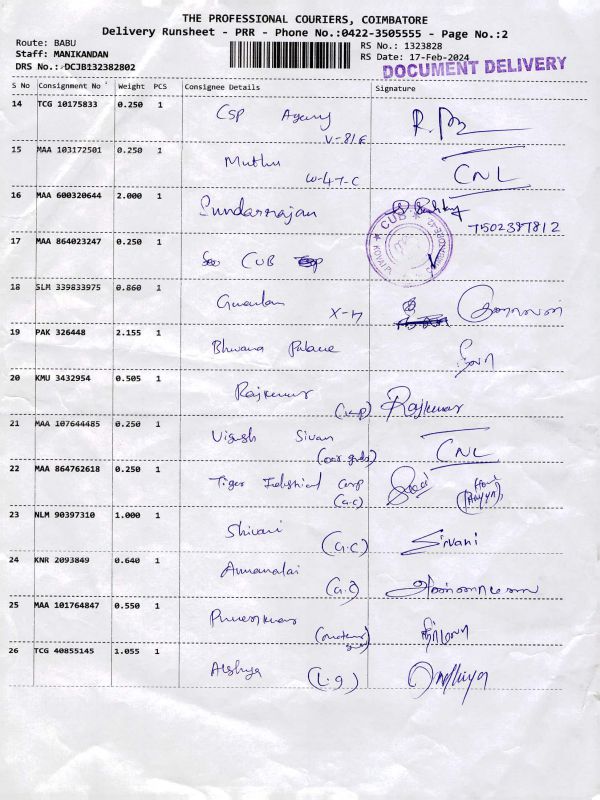 THE PROFESSIONAL COURIERS, COIMBATORE
Delivery Runsheet - PRR - Phone No.:0422-3505555 - Page No.:2
Route: BABU
Staff: MANIKANDAN
DRS No.: DCJB132382802
RS No.: 1323828
RS Date: 17-Feb-2024
DOCUMENT DELIVERY
S No Consignment No Weight PCS Consignee Details Signature
14 TCG 10175833 0.250 1 CSP Agency
15 MAA 103172501 0.250 1 Muthu CNL
W-47-C
16 MAA 600320644 2.000 1 Sundarrajan
7502397812
CUB
17 MAA 864023247 0.250 1 CUB
18 SLM 339833975 0.860 1
X-17
19 PAK 326448 2.155 1 Bhuvana Palace
20 KMU 3432954 0.505 1 Rajkumar Rajkumar
21 MAA 107644485 0.250 1 Sivan CNL
22 MAA 864762618 0.250 1 Tiger Industrial Corp
(G.C)
23 NLM 90397310 1.000 1 Shivani
(G.C) Sivani
24 KNR 2093849 0.640 1 Annamalai
(G.C) அண்ணாமலை
25 MAA 101764847 0.550 1 நிர்மலா
26 TCG 40855145 1.055 1
(L.G)